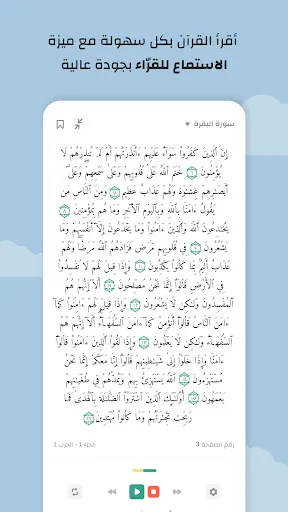 أقرأ القرآن بكل سهولة مع ميزة
الاستماع للقرّاء بجودة عالية
سورة البقرة
إِنَّ ٱلَّذِينَ كَفَرُوا۟ سَوَآءٌ عَلَيْهِمْ ءَأَنذَرْتَهُمْ أَمْ لَمْ تُنذِرْهُمْ لَا
يُؤْمِنُونَ ٦ خَتَمَ ٱللَّهُ عَلَىٰ قُلُوبِهِمْ وَعَلَىٰ سَمْعِهِمْ وَعَلَىٰٓ
أَبْصَٰرِهِمْ غِشَٰوَةٌ وَلَهُمْ عَذَابٌ عَظِيمٌ ٧ وَمِنَ ٱلنَّاسِ مَن
يَقُولُ ءَامَنَّا بِٱللَّهِ وَبِٱلْيَوْمِ ٱلْءَاخِرِ وَمَا هُم بِمُؤْمِنِينَ ٨
يُخَٰدِعُونَ ٱللَّهَ وَٱلَّذِينَ ءَامَنُوا۟ وَمَا يَخْدَعُونَ إِلَّآ أَنفُسَهُمْ وَمَا
يَشْعُرُونَ ٩ فِى قُلُوبِهِم مَّرَضٌ فَزَادَهُمُ ٱللَّهُ مَرَضًا وَلَهُمْ
عَذَابٌ أَلِيمٌۢ بِمَا كَانُوا۟ يَكْذِبُونَ ١٠ وَإِذَا قِيلَ لَهُمْ لَا تُفْسِدُوا۟
فِى ٱلْأَرْضِ قَالُوٓا۟ إِنَّمَا نَحْنُ مُصْلِحُونَ ١١ أَلَآ إِنَّهُمْ هُمُ
ٱلْمُفْسِدُونَ وَلَٰكِن لَّا يَشْعُرُونَ ١٢ وَإِذَا قِيلَ لَهُمْ ءَامِنُوا۟ كَمَآ
ءَامَنَ ٱلنَّاسُ قَالُوٓا۟ أَنُؤْمِنُ كَمَآ ءَامَنَ ٱلسُّفَهَآءُ أَلَآ إِنَّهُمْ هُمُ
ٱلسُّفَهَآءُ وَلَٰكِن لَّا يَعْلَمُونَ ١٣ وَإِذَا لَقُوا۟ ٱلَّذِينَ ءَامَنُوا۟ قَالُوٓا۟
ءَامَنَّا وَإِذَا خَلَوْا۟ إِلَىٰ شَيَٰطِينِهِمْ قَالُوٓا۟ إِنَّا مَعَكُمْ إِنَّمَا نَحْنُ
مُسْتَهْزِءُونَ ١٤ ٱللَّهُ يَسْتَهْزِئُ بِهِمْ وَيَمُدُّهُمْ فِى طُغْيَٰنِهِمْ
يَعْمَهُونَ ١٥ أُو۟لَٰٓئِكَ ٱلَّذِينَ ٱشْتَرَوُا۟ ٱلضَّلَٰلَةَ بِٱلْهُدَىٰ فَمَا
رَبِحَت تِّجَٰرَتُهُمْ وَمَا كَانُوا۟ مُهْتَدِينَ ١٦
رقم الصفحة 3
الجزء 1 - الحزب 1